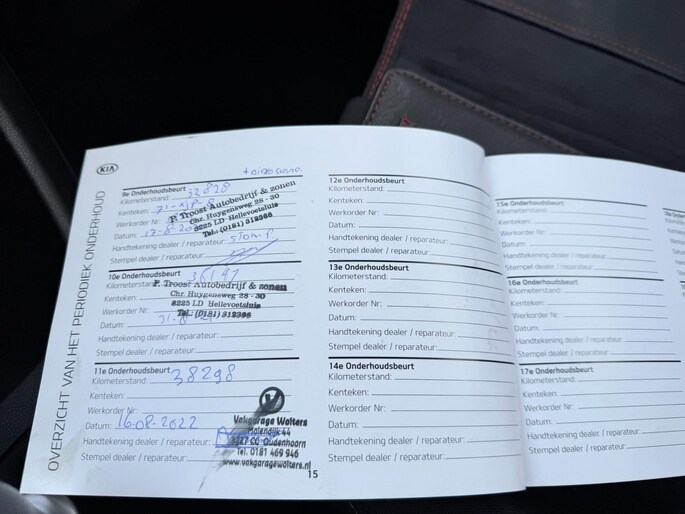 KIA
OVERZICHT VAN HET PERIODIEK ONDERHOUD
9e Onderhoudsbeurt
Kilometerstand: 32828
Kenteken:
Werkorder Nr:
Datum: 17-8-20
Handtekening dealer / reparateur:
Stempel dealer / reparateur:
P. Troost Autobedrijf & zonen
Chr. Huygensweg 28 - 30
3225 LD Hellevoetsluis
Tel.: (0181) 312366
10e Onderhoudsbeurt
Kilometerstand: 36141
Kenteken:
Werkorder Nr:
Datum: 31-8
Handtekening dealer / reparateur:
Stempel dealer / reparateur:
P. Troost Autobedrijf & zonen
Chr. Huygensweg 28 - 30
3225 LD Hellevoetsluis
Tel.: (0181) 312366
11e Onderhoudsbeurt
Kilometerstand: 38298
Kenteken:
Werkorder Nr:
Datum: 16-08-2022
Handtekening dealer / reparateur:
Stempel dealer / reparateur:
Vakgarage Wolters
Molendijk 44
CC Oudenhoorn
Tel. 0181 469 946
www.vakgaragewolters.nl
15
12e Onderhoudsbeurt
Kilometerstand:
Kenteken:
Werkorder Nr:
Datum:
Handtekening dealer / reparateur:
Stempel dealer / reparateur:
13e Onderhoudsbeurt
Kilometerstand:
Kenteken:
Werkorder Nr:
Datum:
Handtekening dealer / reparateur:
Stempel dealer / reparateur:
14e Onderhoudsbeurt
Kilometerstand:
Kenteken:
Werkorder Nr:
Datum:
Handtekening dealer / reparateur:
Stempel dealer / reparateur:
15e Onderhoudsbeurt
Kilometerstand:
Kenteken:
Werkorder Nr:
Datum:
Handtekening dealer / reparateur:
Stempel dealer / reparateur:
16e Onderhoudsbeurt
Kilometerstand:
Kenteken:
Werkorder Nr:
Datum:
Handtekening dealer / reparateur:
Stempel dealer / reparateur:
17e Onderhoudsbeurt
Kilometerstand:
Kenteken:
Werkorder Nr:
Datum:
Handtekening dealer / reparateur:
Stempel dealer / reparateur: